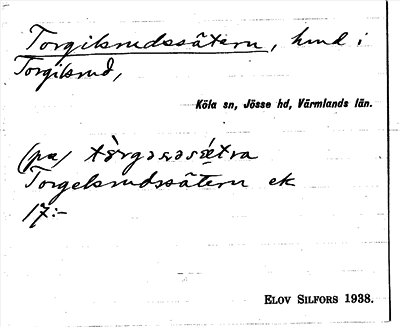 Torgilsrudssätern, hmd i
Torgilsrud,
Köla sn, Jösse hd, Värmlands län.
(på) tǒrgəsəsætra
Torgelsrudssätern ek
17:-
ELOV SILFORS 1938.